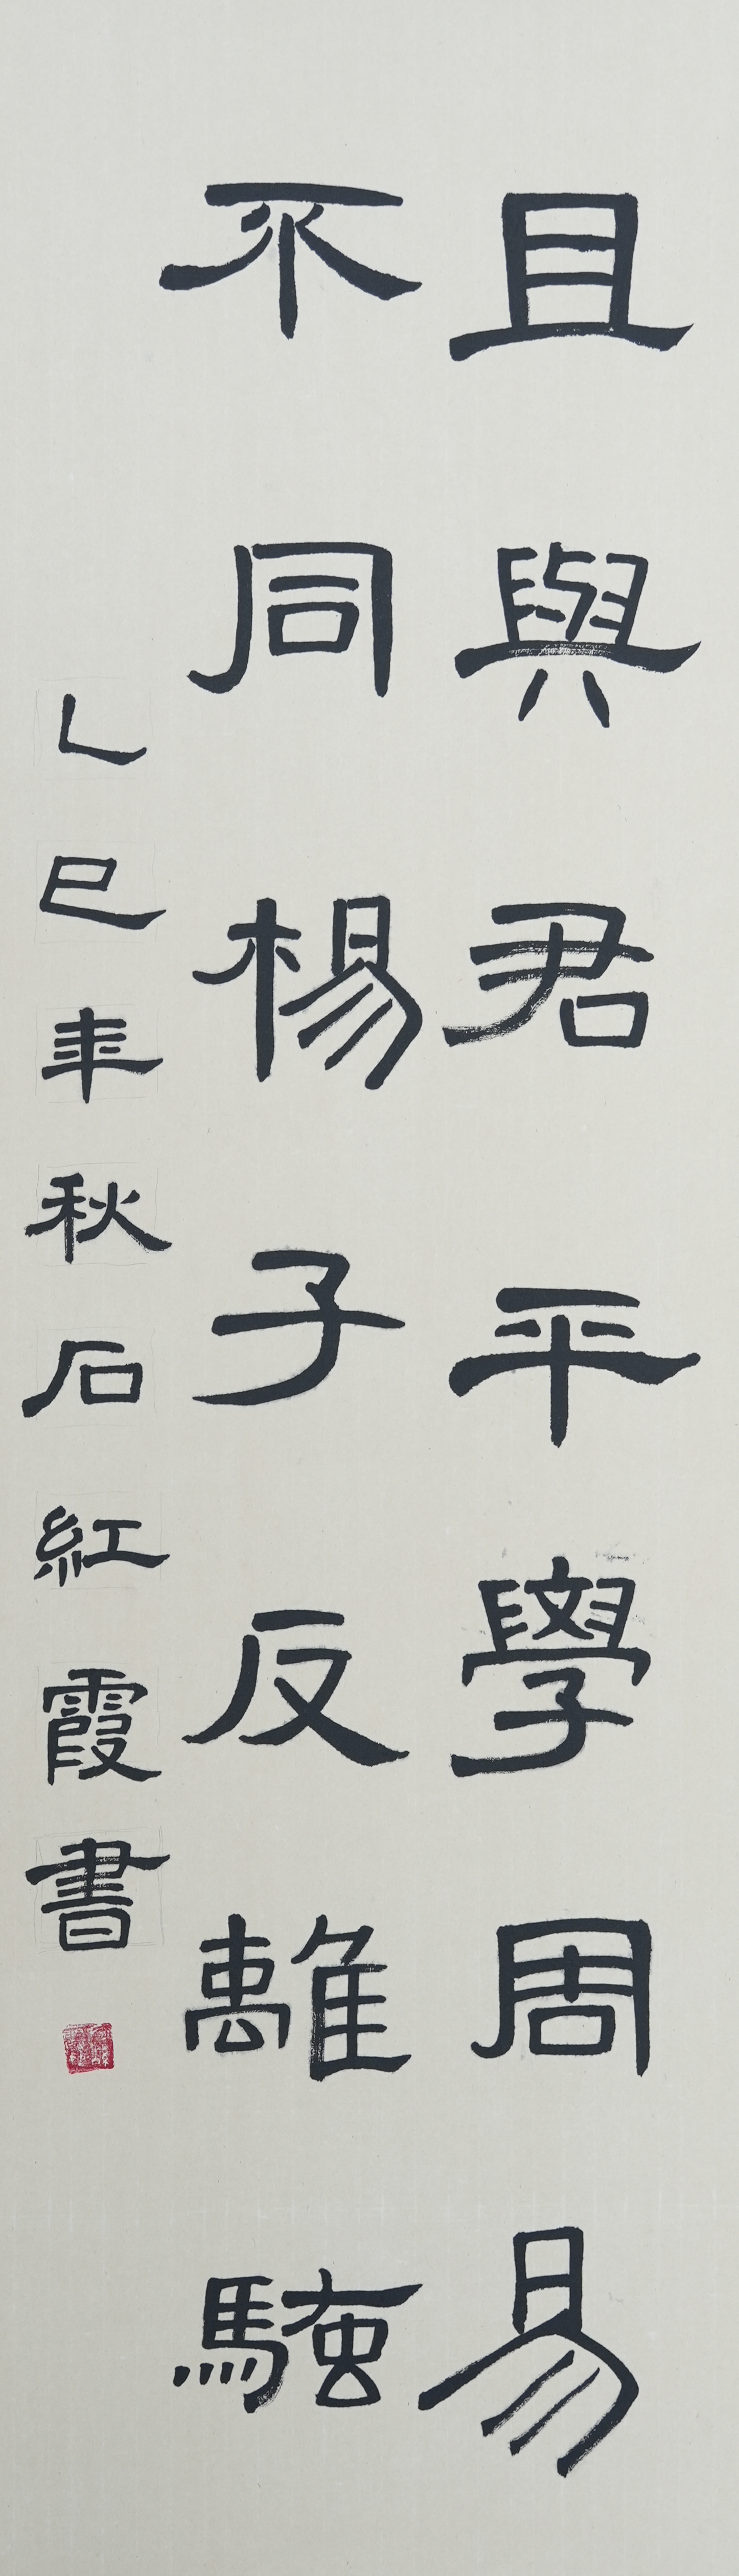 且與君平學周易
不同楊子反離騷
乙巳年秋石紅霞書